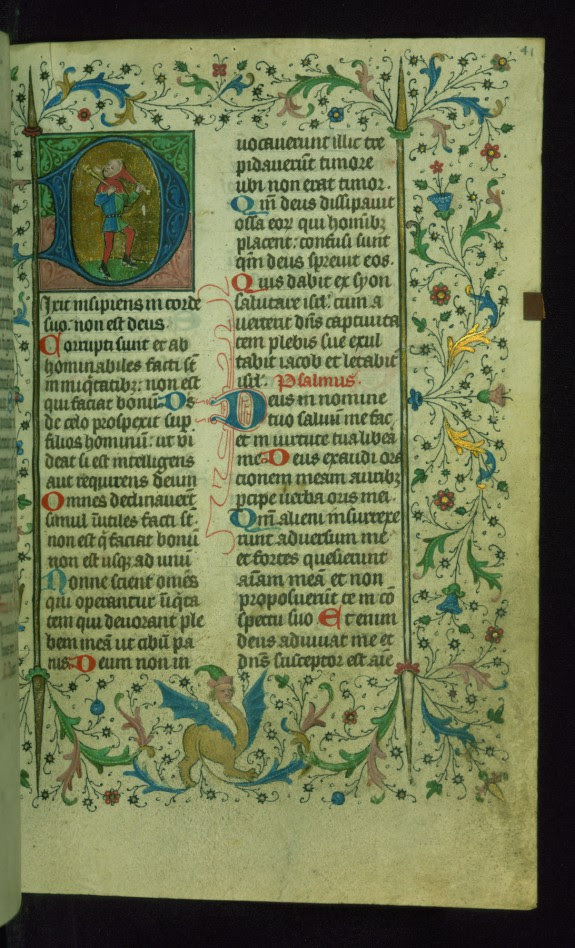 41
Dixit insipiens in corde
suo: non est deus
Corrupti sunt et ab
hominabiles facti st̄
in iniq̄tatibꝫ: non est
qui faciat bonū. Ds̄
de celo prospexit sup̄
filios hominū: ut vi
deat si est intelligens
aut requirens deum
Omnes declinauerūt
simul īutiles facti st̄.
non est q̇ faciat bonū
non est usqꝫ ad unū
Nonne scient om̄es
qui operantur iniq̄ta
tem qui deuorant ple
bem meā ut cibū pa
nis. Deum non in
uocauerunt illic tre
pidauerūt timore
ubi non erat timor.
Qm̄ deus dissipauit
ossa eoꝝ qui hominibꝫ
placent: confusi sunt
qm̄ deus spreuit eos.
Quis dabit ex syon
salutare isrl̄: cum a
uerterit dn̄s captiuita
tem plebis sue exul
tabit iacob et letabit̄
isrl̄. Psalmus.
Deus in nomine
tuo saluū me fac
et in uirtute tua libera
me. Deus exaudi ora
tionem meam auribꝫ
ꝑcipe uerba oris mei.
Qm̄ alieni insurrexe
runt aduersum me
et fortes quesierunt
aīam meā et non
proposuerūt te in cō
spectu suo Et enim
deus adiuuat me et
dn̄s susceptor est aīe